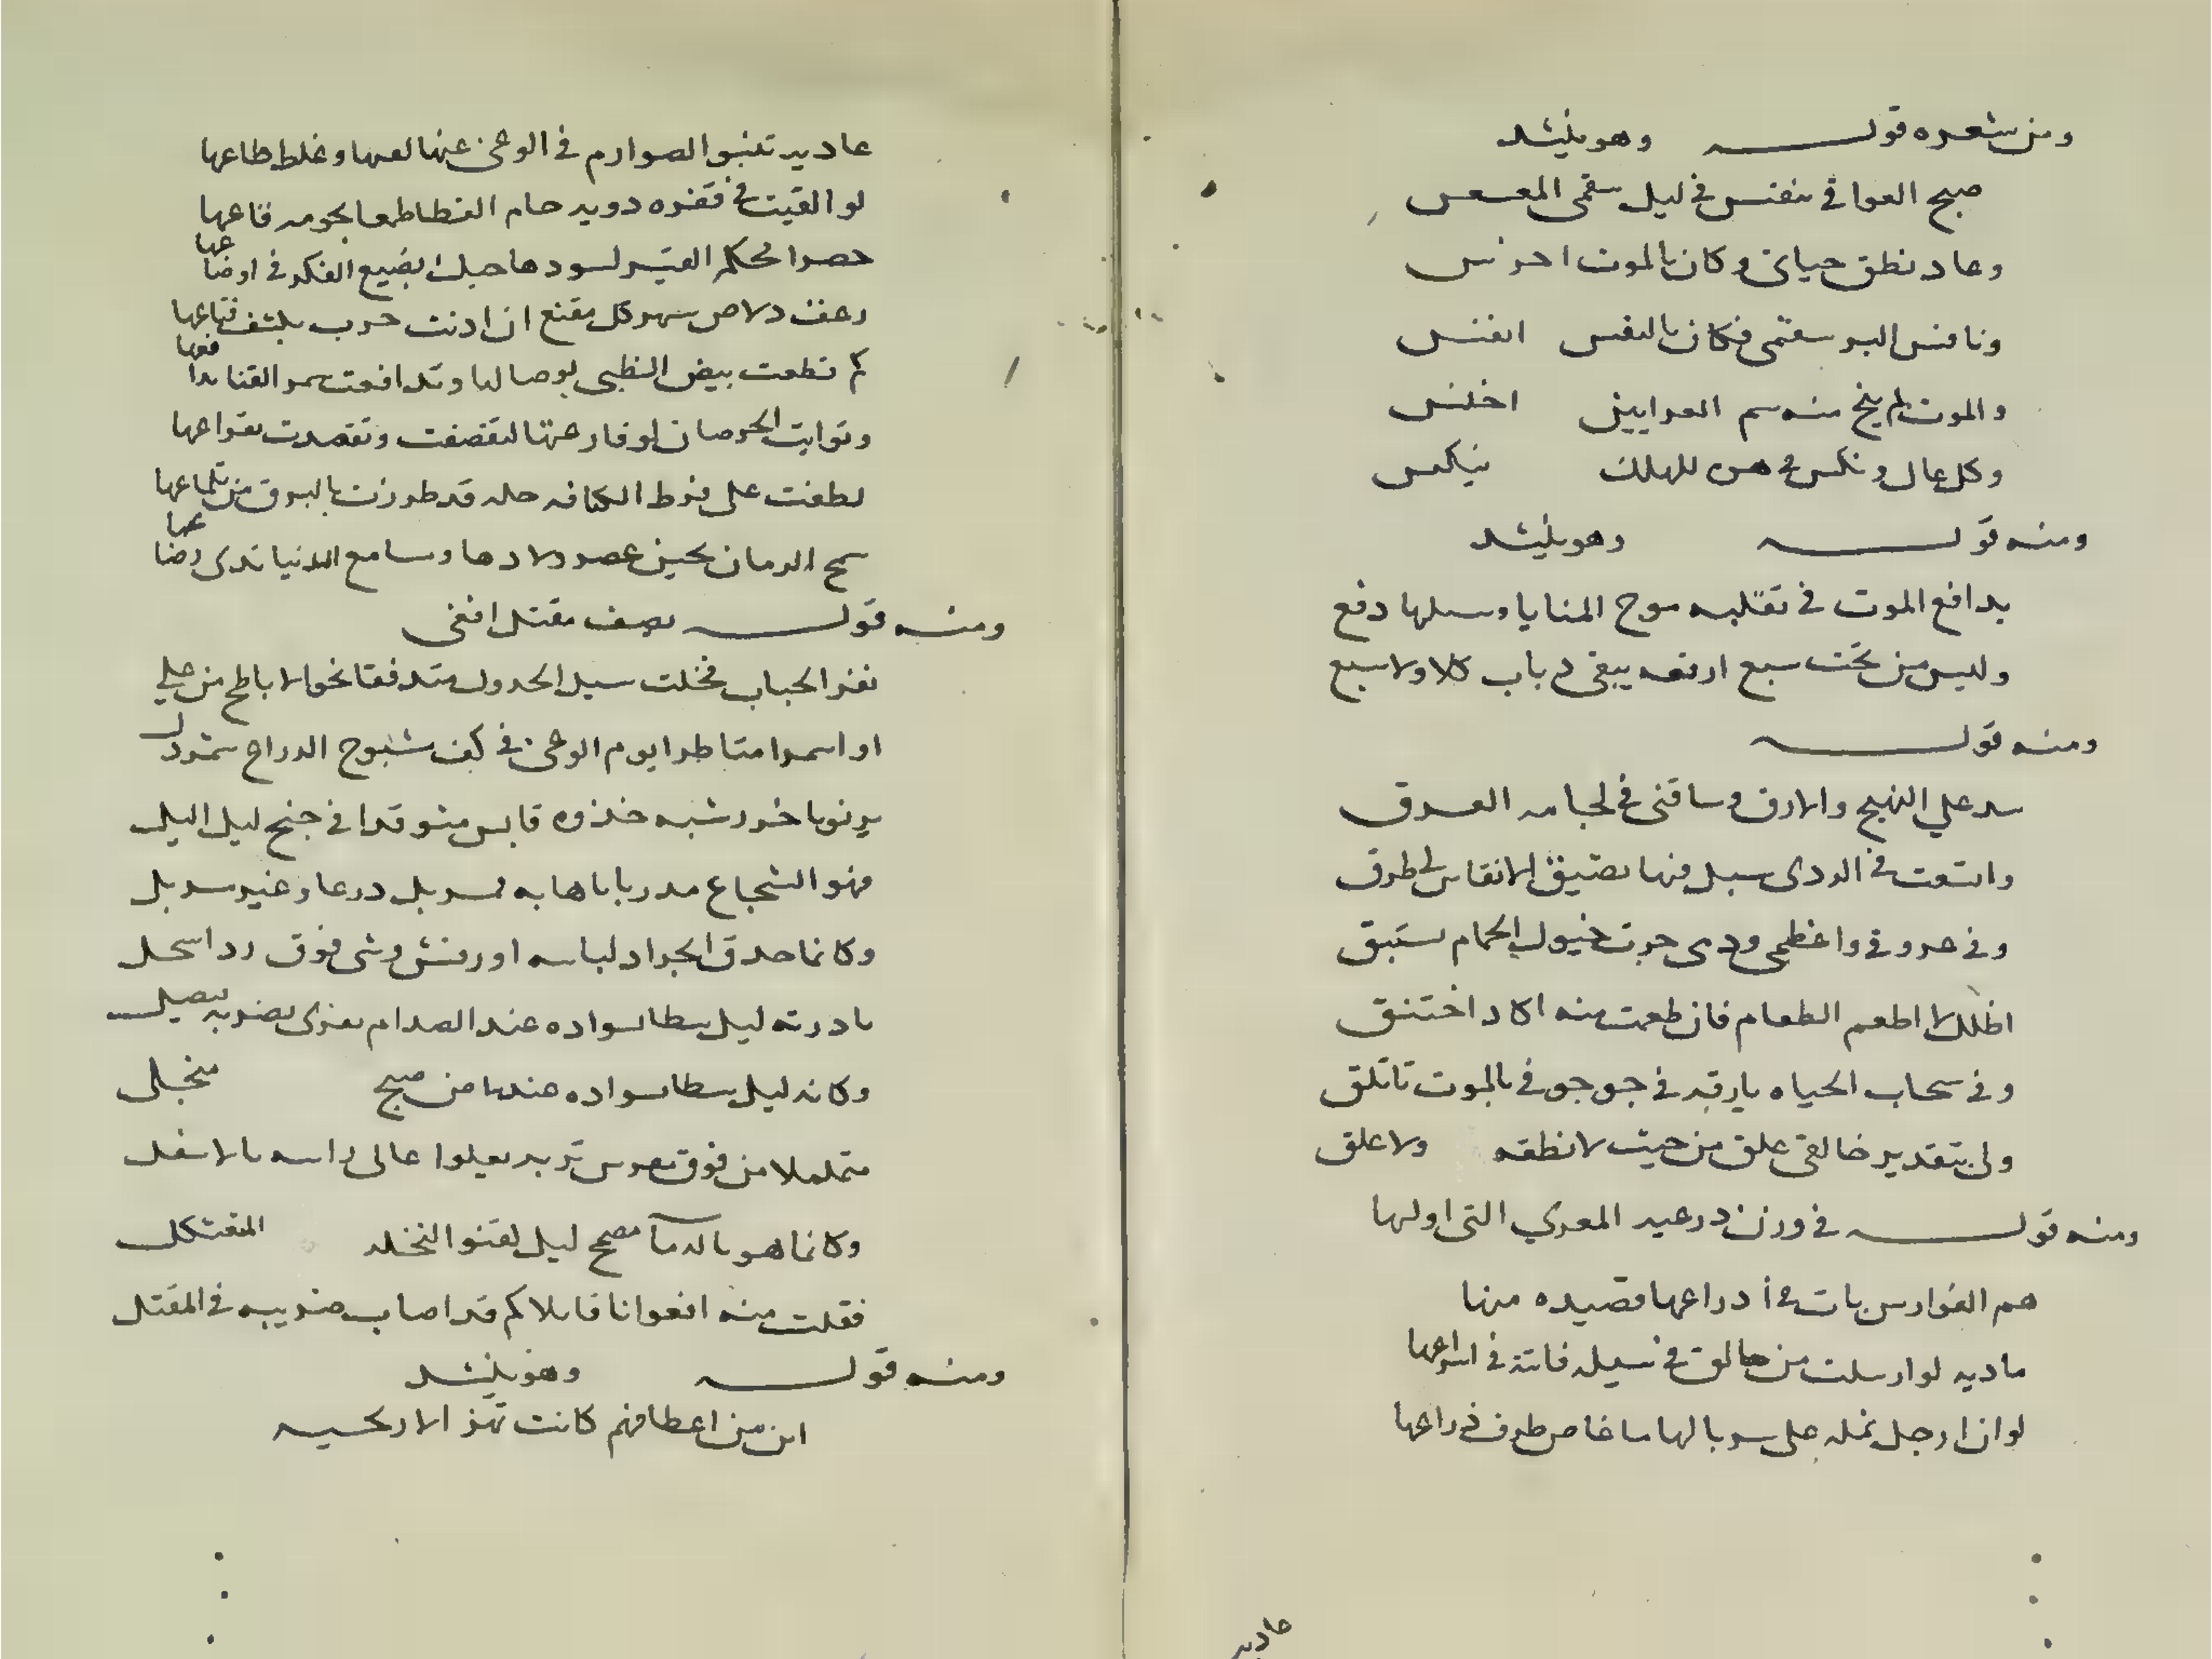 ومن شعره قوله وهو ينشد
صبح العوافي تنفس في ليل سقمى المعسعس
وعاد نطق حياتى وكان بالموت اخرس
ونافس البر سقمى فكان بالنفس انفس
والموت لم ينج منه سم العرابين اخنس
وكل عال ونكس في هس للهلك ينكس
ومنه قوله وهو ينشد
يدافع الموت في تقلبه موج المنايا وسيلها دفع
وليس من تحت سبع ارقعه يبقى ذباب كلا ولا سبع
ومنه قوله
سد علي النهج والارق وساقنى في لجامه العرق
واتسعت في الردى سبل فيها تضيق الانفاس لي طرق
وفي عروقي واعظمى ودمى جرت خيول الحمام تستبق
اظل لا اطعم الطعام فان طعمت منه اكاد اختنق
وفي سحاب الحياه بارقه في جو جوفي بالموت تاتلق
ولى بتقدير خالقى علق من حيث لا نطفه ولا علق
ومنه قوله في وزن درعيه المعري التى اولها
هم الفوارس بات في ادراعها قصيده منها
ماديه لو ارسلت من حالق في سيله فاتته في اسراعها
لو ان ارجل نمله على سربالها ما غاص طرف ذراعها
عاديه
عاديه تنبو الصوارم في الوغى عنها لعها وغلظ طاعها
لو القيت في قفره دويه حام القطا طمعا بحومه قاعها
حصرا محكم القتير لسودها حبك يضيع الفكر في اوضاعها
زعف دلاص سهر كل مقنع ان اذنت حرب بكشف قناعها
كم قطعت بيض الظبى لوصالها وتدافعت سمر القنا لدفاعها
وتوايت الخرصان لو قارعتها لتقصفت وتقصدت بقراعها
لطفت على فرط الكثافه حله قد طرزت بالبروق من تلماعها
سمح الزمان بحين عصر ولادها ومسامع الدنيا ندى رضاعها
ومنه قوله يصف مقتل افعى
نفر الحباب فخلت سيل الجدول متدفقا نحو الاباطح من علي
او اسمرا متاطرا يوم الوغى في كف مشبوح الذراع شمردل
يرنو باخزر شبه جذوه قابس متوقدا في جنح ليل اليل
فهو الشجاع مدربا باهابه لمسربل درعا وغير مسربل
وكانما حدق الجراد لباسه او رقش وشى فوق ردا اسحل
بادرته ليل سطا بسواده عند الصدام بغزى بضربه فيصل
وكانه ليل سطا بسواده عندنا من صبح منجلى
متململا من فوق مغرس تربه يعلوا عالى راسه بالاسفل
وكانما هو بالدما مصح ليل لقنو النخله المتعثكل
فقلت منه افعوانا قايلا كم قد اصاب ضريبه في المقتل
ومنه قوله وهو ينشد
اين من اعطافهم كانت تهز الاريحيه